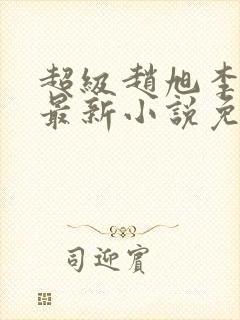 超級趙旭李
最新小說免
司迎賓